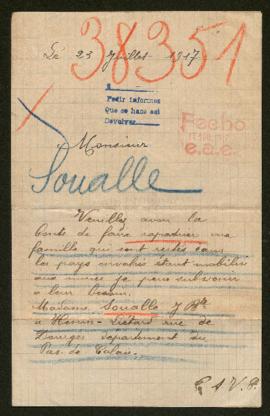 38351
Le 23 Juillet 1917
Pedir informes
Que se hace así
Devolver
Fecho
e.a.e.
Monsieur
Soualle
Veuillez avoir la
bonté de faire rapatrier ma
famille qui sont restés dans
les pays envahis étant mobilisé
aux mines je peux subvenir
à leur besoin.
Madame Soualle J Bte
à Hénin-Liétard rue de
Dourges département du
Pas de Calais.